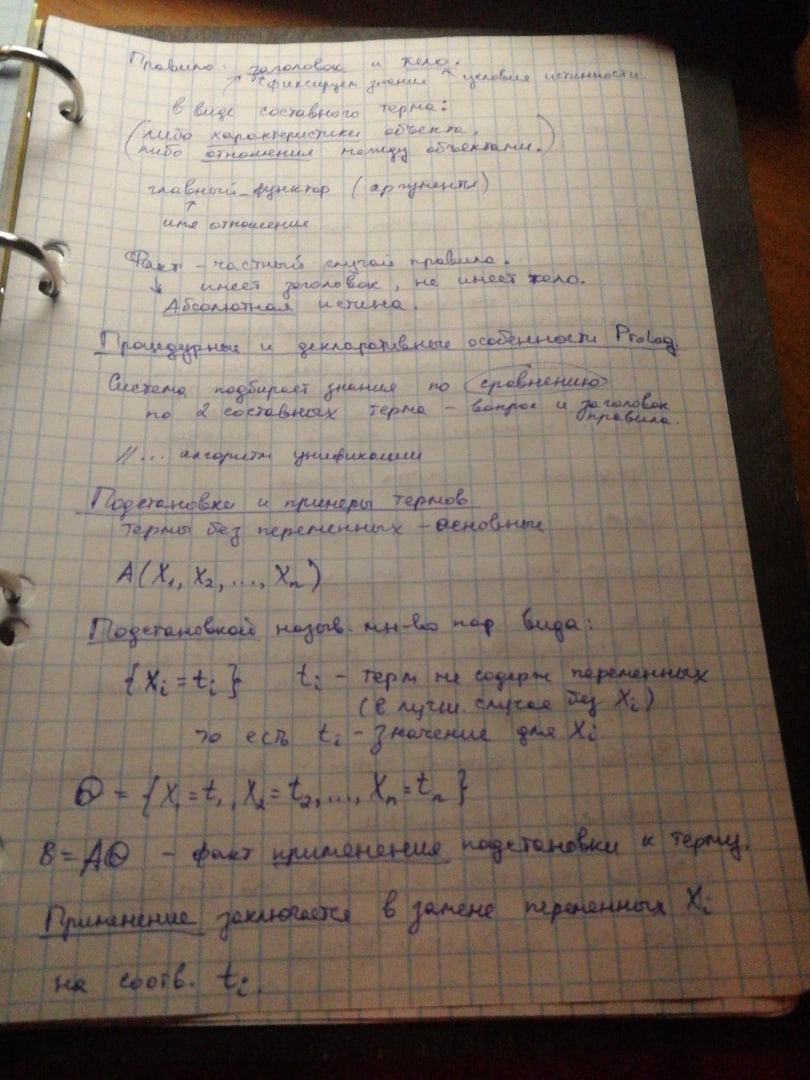 Правило: заголовок и тело.
фиксирует знание условия истинности.
в виде составного терма:
(либо характеристики объекта,
либо отношения между объектами.)
главный_функтор (аргументы)
имя отношения
Факт - частный случай правила.
имеет заголовок, не имеет тело.
Абсолютная истина.
Процедурные и декларативные особенности Prolog.
Система подбирает знания по сравнению
по 2 составных терма - вопрос и заголовок
правила.
//... алгоритм унификации
Подстановка и примеры термов
термы без переменных - основные
A(X₁, X₂, ..., Xₙ)
Подстановкой назыв. мн-во пар вида:
{Xᵢ = tᵢ} tᵢ - терм не содерж переменных
(в лучш. случае без Xᵢ)
то есть tᵢ - значение для Xᵢ
Θ = {X₁=t₁, X₂=t₂, ..., Xₙ=tₙ}
B = AΘ - факт применения подстановки к терму.
Применение заключается в замене переменных Xᵢ
на соотв. tᵢ.